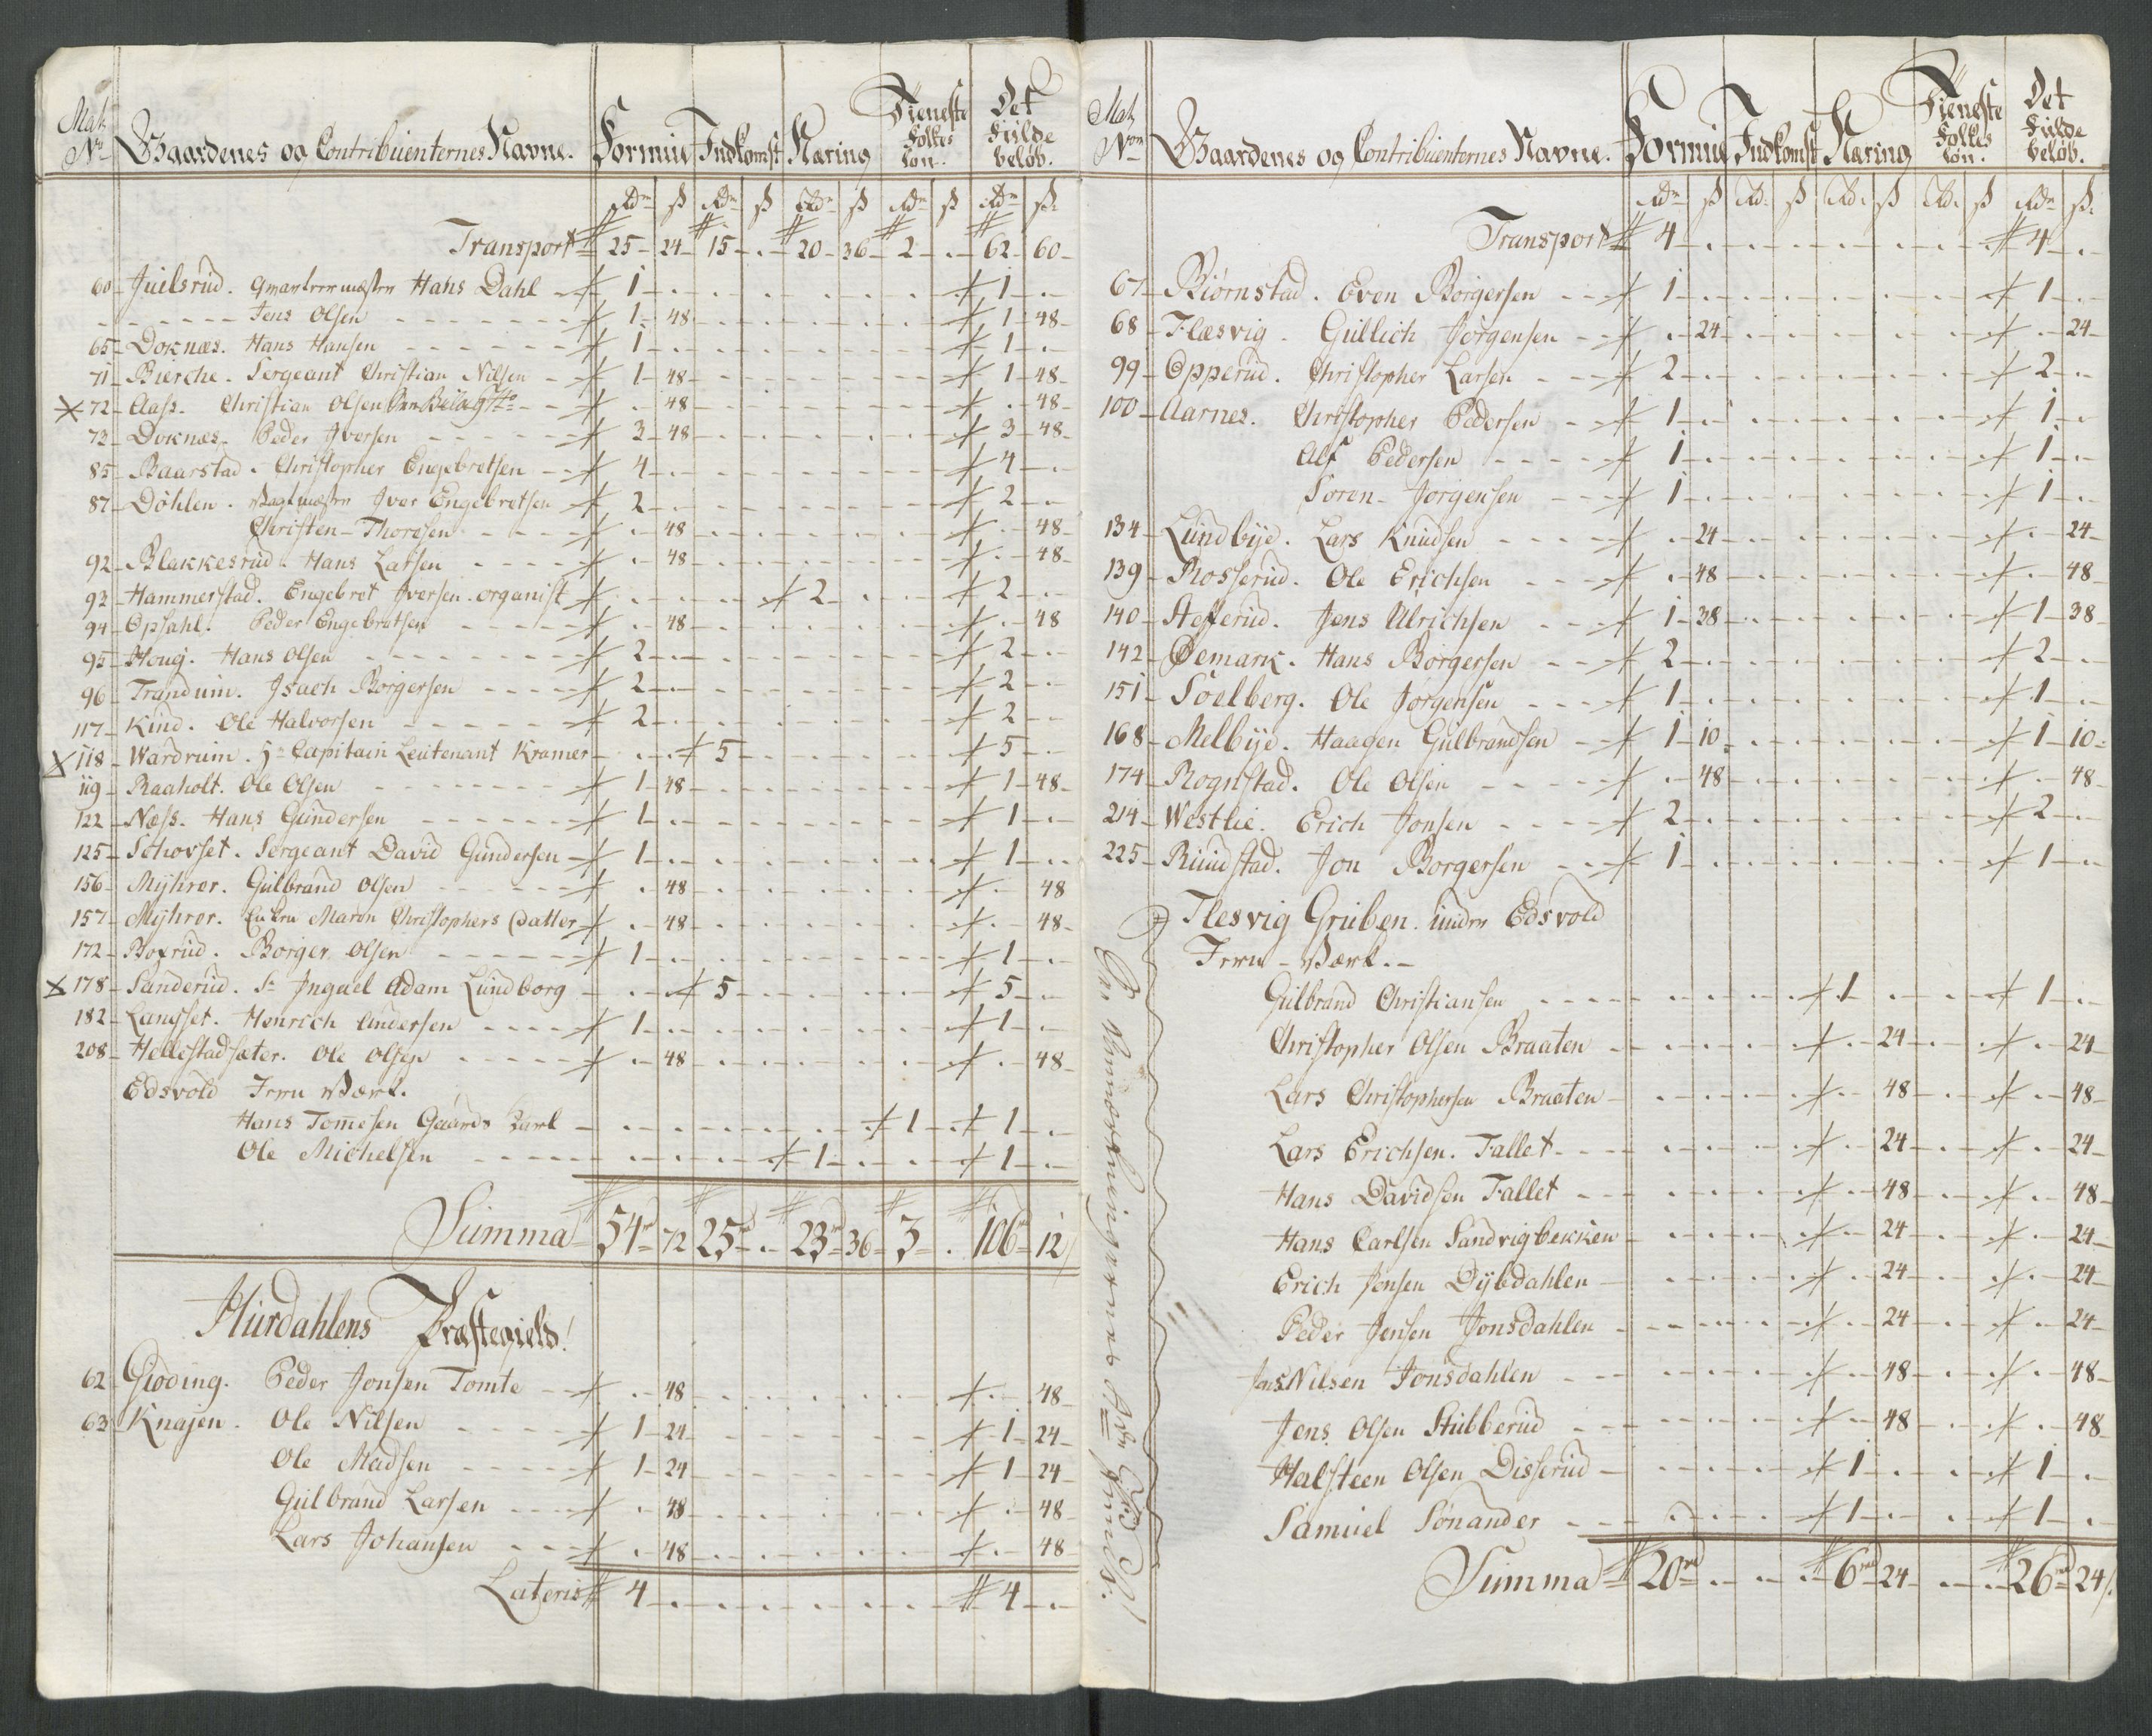 Mat. Nr. Gaardenes og Contribuenternes Navne. Formue Indkomst Næring Tieneste Folkes Løn. Det fulde beløb.
Rdr ß Rdr ß Rdr ß Rdr ß Rdr ß.
Transport 25 - 24 - 15 - . - 20 - 36 - 2 - . - 62 - 60 -
60 - Juilsrud. Hans Dahl - 1 - . - 1 - . -
- - - - - - Jens Olsen - 1 - 48 - 1 - 48 -
65 - Doknæs. Hans Hansen - 1 - . - 1 - . -
71 - Bierche. Sergeant Christian Nilsen - 1 - 48 - 1 - 48 -
x 72 - Aass. Christian Olsen - . - 48 - . - 48 -
73 - Doknæs. Peder Iversen - 3 - 48 - 3 - 48 -
85 - Baarstad. Christopher Engebretsen - 4 - . - 4 - . -
87 - Döhlen. Iver Engebretsen - 2 - . - 2 - . -
Christen Thoresen - . - 48 - . - 48 -
92 - Blakkesrud. Hans Larsen - . - 48 - . - 48 -
93 - Hammerstad. Engebret Iversen. organist - 2 - . - 2 - . -
94 - Opsahl. Peder Engebretsen - . - 48 - . - 48
95 - Houg. Hans Olsen - 2 - . - 2 - . -
96 - Trandum. Isach Borgersen - 2 - . - 2 - . -
117 - Kind. Ole Halvorsen - 2 - . - 2 - . -
x 118 - Wardrum. Hr Capitain Leutenant Kramer - 5 - . - 5 - . -
119 - Raaholt. Ole Olsen - 1 - 48 - 1 - 48 -
122 - Næss. Hans Gundersen - 1 - . - 1 - . -
125 - Schovset. Sergeant David Gundersen - 1 - . - 1 - . -
156 - Mÿhrer. Gulbrand Olsen - . - 48 - . - 48
157 - Mÿhrer. Enken Maren Christophers Datter - . - 48 - . - 48 -
172 - Boxrud. Borger Olsen - 1 - . - 1 - . -
x 178 - Sanderud. Sr Inguel Adam Lundborg - 5 - . - 5 - . -
182 - Langset. Henrich Andersen - 1 - . - 1 - . -
208 - Hellestadsæter. Ole Olsen - . - 48 - . - 48 -
Edsvold Jern Værk.
Hans Tomesen Gaards Karl - 1 - . - 1 - . -
Ole Michelsen - 1 - . - 1 - . -
Summa 54 rd 72 25 rd . - 23 rd 36 - 3 - . 106 rd 12 ß
Hurdahlens Præstegield!
62 Gioding. Peder Jonsen Tomte - . - 48 - . - 48 -
63 Knajen. Ole Nilsen - 1 - 24 - 1 - 24 -
Ole Madsen - 1 - 24 - 1 - 24 -
Gulbrand Larsen - . - 48 - . - 48 -
Lars Johansen - . - 48 - . - 48 -
Lateris 4 - . - 4 - . -
Mat. Nr. Gaardenes og Contribuenternes Navne. Formue Indkomst Næring Tieneste Folkes Løn. Det fulde beløb.
Rdr ß Rd. ß Rd. ß Rd. ß Rdr ß.
Transport 4 - . - 4 - . -
67 - Biørnstad. Even Borgersen - 1 - . - 1 - . -
68 - Flæsvig. Gullich Jørgensen - . - 24 - . - 24 -
99 - Opperud. Christopher Larsen - 2 - . - 2 - . -
100 - Aarnes. Christopher Pedersen - 1 - . - 1 - . -
Alf Pedersen - 1 - . - 1 - . -
Soren Jorgensen - 1 - . - 1 - . -
134 - Lundbÿe. Lars Knudsen - . - 24 - . - 24 -
139 - Rosserud. Ole Erichsen - . - 48 - . - 48 -
140 - Stefferud. Jens Ulrichsen - 1 - 38 - 1 - 38 -
142 - Demark. Hans Borgersen - 2 - . - 2 - . -
151 - Soelberg. Ole Jørgensen - 1 - . - 1 - . -
168 - Melbÿe. Haagen Gulbrandsen - 1 - 10 - 1 - 10 -
174 - Rognstad. Ole Olsen - . - 48 - . - 48 -
214 - Westlie. Erich Jonsen - 2 - . - 2 - . -
225 - Ruudstad. Jon Borgersen - 1 - . - 1 - . -
Flesvig Gruben. under Edsvold
Jern - Værk. -
Gulbrand Christiansen - 1 - . - 1 - . -
Christopher Olsen Braaten - . - 24 - . - 24 -
Lars Christophersen Braaten - . - 48 - . - 48 -
Lars Erichsen. Fallet - . - 24 - . - 24 -
Hans Davidsen Fallet - . - 48 - . - 48 -
Hans Carlsen Sandvigbekken - . - 24 - . - 24 -
Erich Jensen Dÿbdahlen - . - 24 - . - 24 -
Peder Jensen Jonsdahlen - . - 24 - . - 24 -
Jens Nilsen Jonsdahlen - . - 48 - . - 48 -
Jens Olsen Stubberud - . - 48 - . - 48 -
Halsteen Olsen Disserud - 1 - . - 1 - . -
Samuel Sønander - 1 - . - 1 - . -
Summa 20 rd - . - 6 rd 24 - . - 26 rd 24 ß.